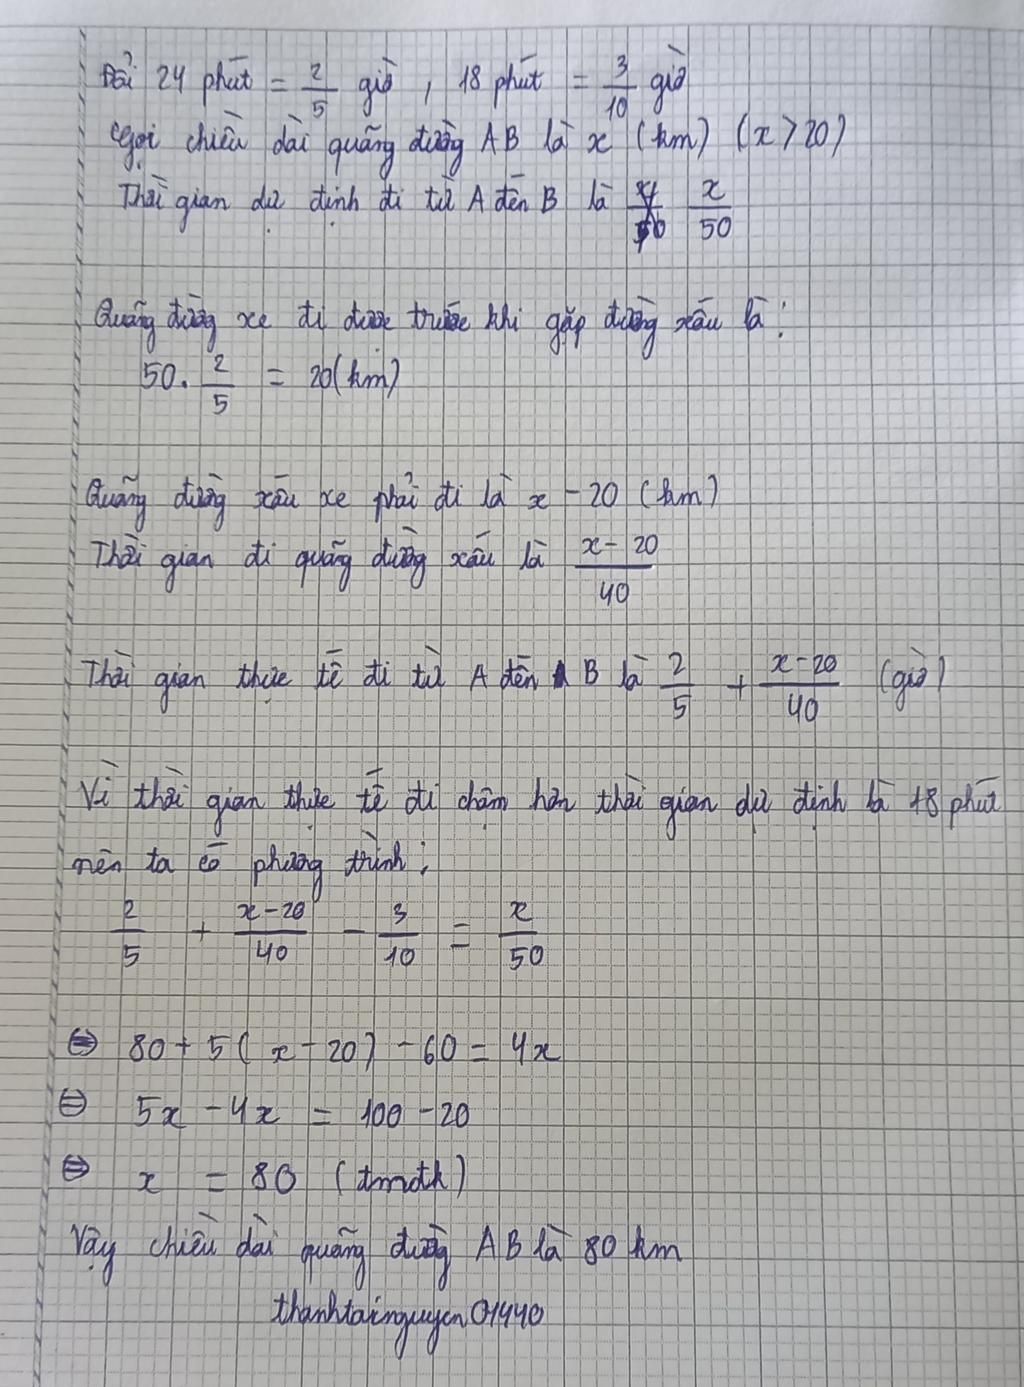 Đổi 24 phút = 2/5 giờ , 18 phút = 3/10 giờ
Gọi chiều dài quãng đường AB là x (km) (x > 20)
Thời gian dự định đi từ A đến B là x/50
Quãng đường xe đi được trước khi gặp đường xấu là:
50. 2/5 = 20 (km)
Quãng đường xấu xe phải đi là x - 20 (km)
Thời gian đi quãng đường xấu là x - 20/40
Thời gian thực tế đi từ A đến B là 2/5 + x - 20/40 (giờ)
Vì thời gian thực tế đi chậm hơn thời gian dự định là 18 phút
nên ta có phương trình:
2/5 + x - 20/40 - 3/10 = x/50
⇔ 80 + 5( x - 20) - 60 = 4x
⇔ 5x - 4x = 100 - 20
⇔ x = 80 (tmđk)
Vậy chiều dài quãng đường AB là 80 km
thanhtainguyen01440